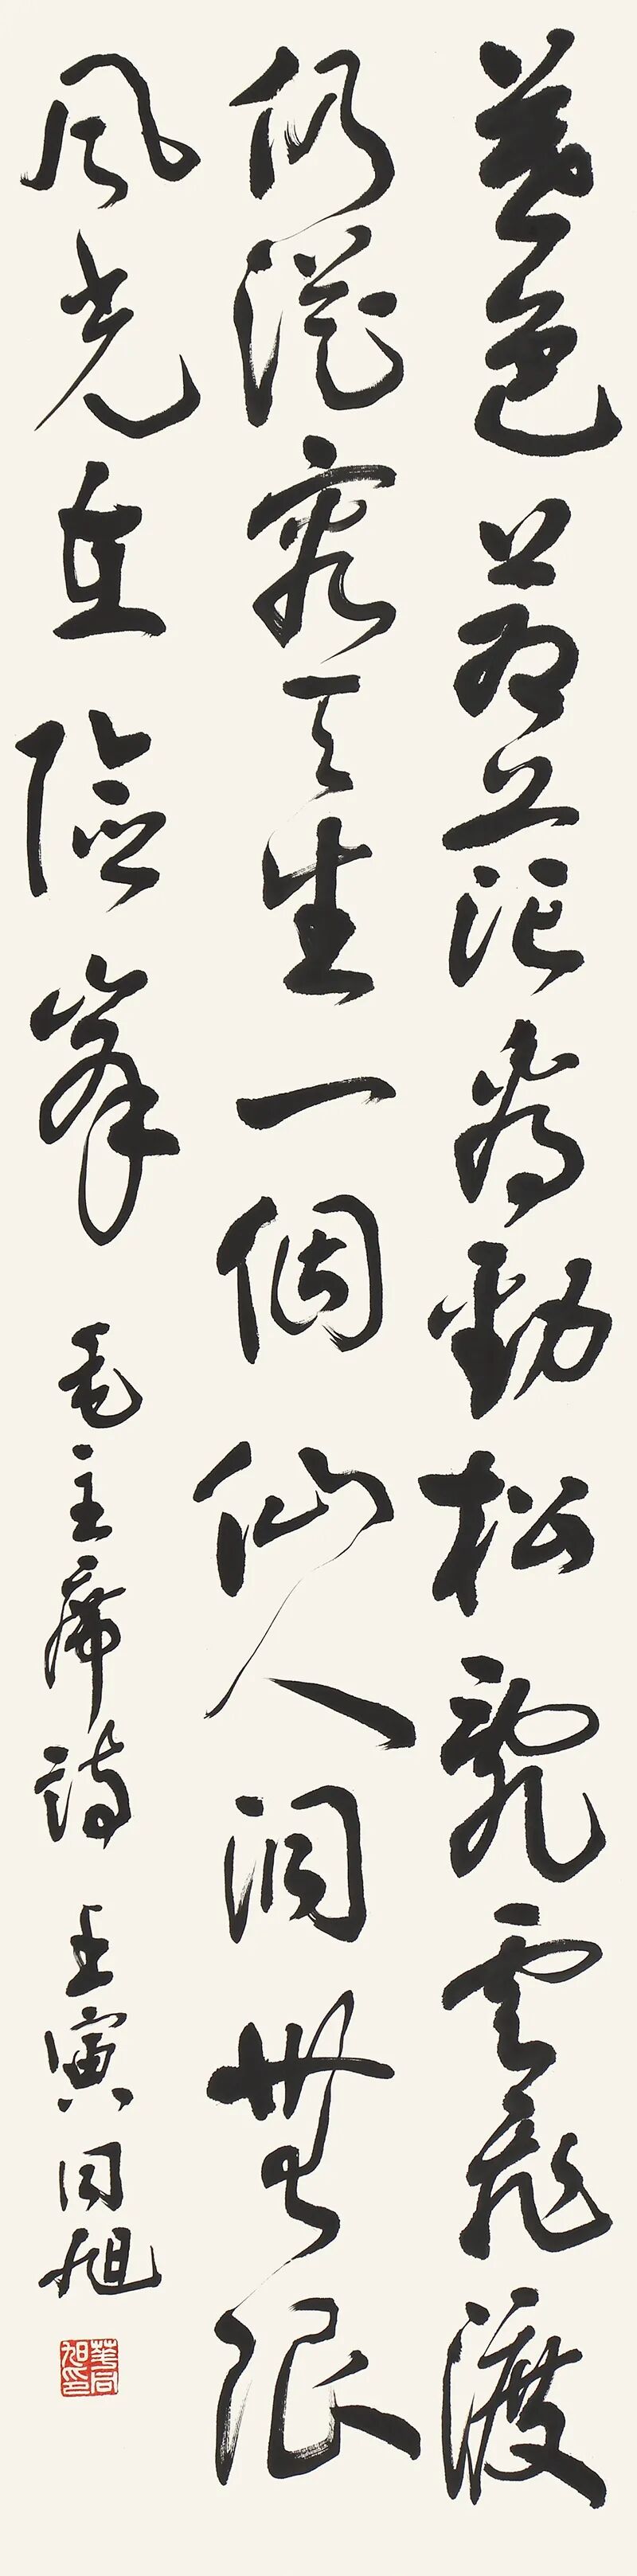 暮色蒼茫看勁松亂雲飛渡
仍從容天生一個仙人洞無限
風光在險峰毛主席詩壬寅同旭
華同旭印